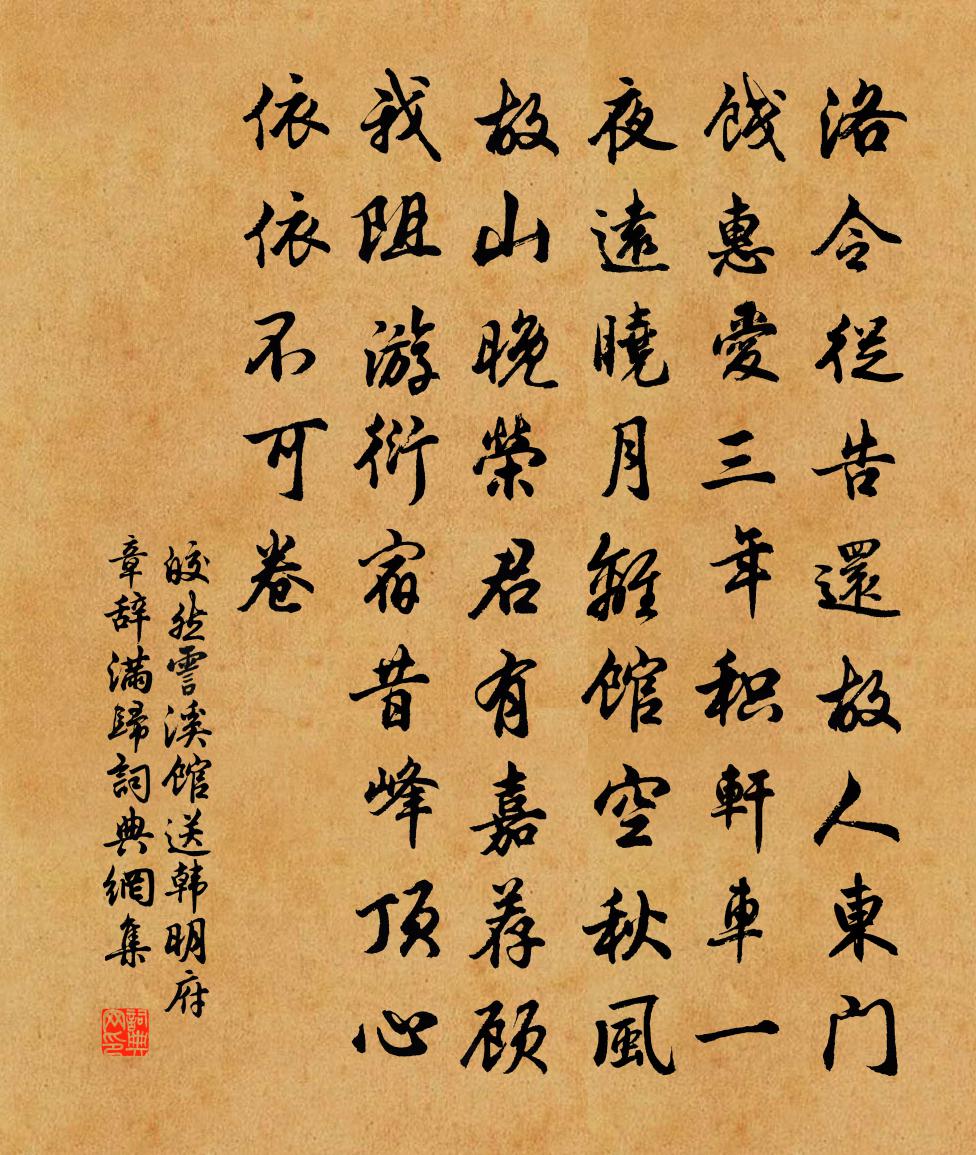 洛令從告還故人東門
餞惠愛三年积軒車一
夜遠曉月離館空秋風
故山晚榮君有嘉荐顾
我阻游衍宿昔峰顶心
依依不可卷
皎然雪溪馆送韩明府
章辞满歸詞典網集
詞典网印